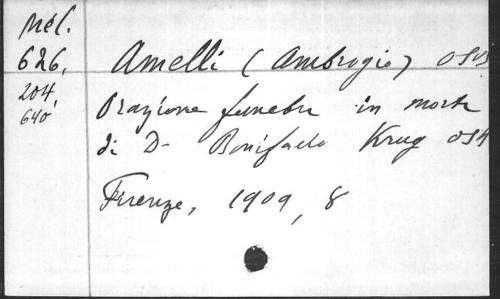 Mél.
626,
204,
640
Amelli (Ambrogio) OSB
Orazione funebre in morte
di D. Bonifacio Krug OSB
Firenze, 1909, 8